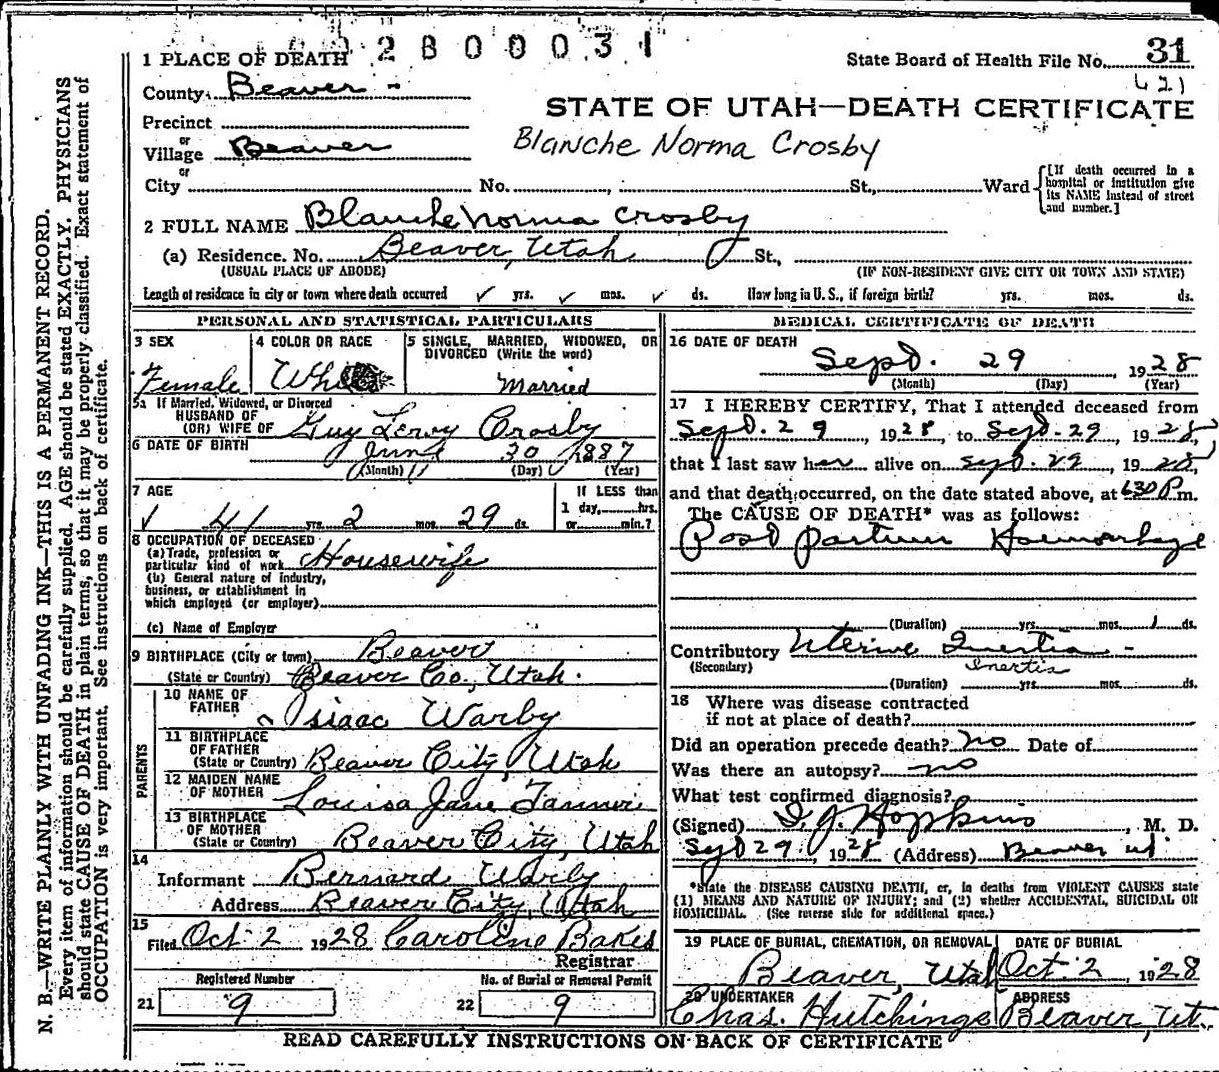 2800031
1 PLACE OF DEATH
State Board of Health File No. 31
621
County Beaver -
STATE OF UTAH—DEATH CERTIFICATE
Precinct
or
Village Beaver
Blanche Norma Crosby
or
City No. , St., Ward
[If death occurred in a hospital or institution give its NAME instead of street and number.]
2 FULL NAME Blanche Norma Crosby
(a) Residence. No. Beaver, Utah St.,
(USUAL PLACE OF ABODE) (IF NON-RESIDENT GIVE CITY OR TOWN AND STATE)
Length of residence in city or town where death occurred ✓ yrs. ✓ mos. ✓ ds. How long in U. S., if foreign birth? yrs. mos. ds.
PERSONAL AND STATISTICAL PARTICULARS
3 SEX
Female
4 COLOR OR RACE
White
5 SINGLE, MARRIED, WIDOWED, OR DIVORCED (Write the word)
Married
5a If Married, Widowed, or Divorced
HUSBAND OF
(OR) WIFE OF Guy Leroy Crosby
6 DATE OF BIRTH June 30 1887
(Month) (Day) (Year)
7 AGE
41 yrs. 2 mos. 29 ds.
If LESS than
1 day, hrs.
or min.?
8 OCCUPATION OF DECEASED
(a) Trade, profession or
particular kind of work Housewife
(b) General nature of industry,
business, or establishment in
which employed (or employer)
(c) Name of Employer
9 BIRTHPLACE (City or town) Beaver
(State or Country) Beaver Co., Utah.
PARENTS
10 NAME OF
FATHER Isaac Warby
11 BIRTHPLACE
OF FATHER
(State or Country) Beaver City, Utah
12 MAIDEN NAME
OF MOTHER Louisa Jane Tanner
13 BIRTHPLACE
OF MOTHER
(State or Country) Beaver City, Utah
14
Informant Bernard Warby
Address Beaver City, Utah
15
Filed Oct 2 1928 Caroline Bakes
Registrar
Registered Number
21 9
No. of Burial or Removal Permit
22 9
MEDICAL CERTIFICATE OF DEATH
16 DATE OF DEATH
Sept. 29 , 1928
(Month) (Day) (Year)
17 I HEREBY CERTIFY, That I attended deceased from
Sept. 29 , 1928, to Sept. 29 , 1928,
that I last saw her alive on Sept. 29 , 1928,
and that death occurred, on the date stated above, at 630 P m.
The CAUSE OF DEATH* was as follows:
Post partum Haemorhage
(Duration) yrs. mos. 1 ds.
Contributory Uterine Inertia -
(Secondary) Inertia
(Duration) yrs. mos. ds.
18 Where was disease contracted
if not at place of death?
Did an operation precede death? no Date of
Was there an autopsy? no
What test confirmed diagnosis?
(Signed) D. J. Hopkins , M. D.
Sept 29, 1928 (Address) Beaver ut.
*State the DISEASE CAUSING DEATH, or, in deaths from VIOLENT CAUSES state
(1) MEANS AND NATURE OF INJURY; and (2) whether ACCIDENTAL, SUICIDAL OR
HOMICIDAL. (See reverse side for additional space.)
19 PLACE OF BURIAL, CREMATION, OR REMOVAL
Beaver, Utah
DATE OF BURIAL
Oct. 2 , 1928
20 UNDERTAKER
Chas. Hutchings
ADDRESS
Beaver, Ut.
READ CAREFULLY INSTRUCTIONS ON BACK OF CERTIFICATE
N. B.—WRITE PLAINLY WITH UNFADING INK—THIS IS A PERMANENT RECORD.
Every item of information should be carefully supplied. AGE should be stated EXACTLY. PHYSICIANS
should state CAUSE OF DEATH in plain terms, so that it may be properly classified. Exact statement of
OCCUPATION is very important. See instructions on back of certificate.